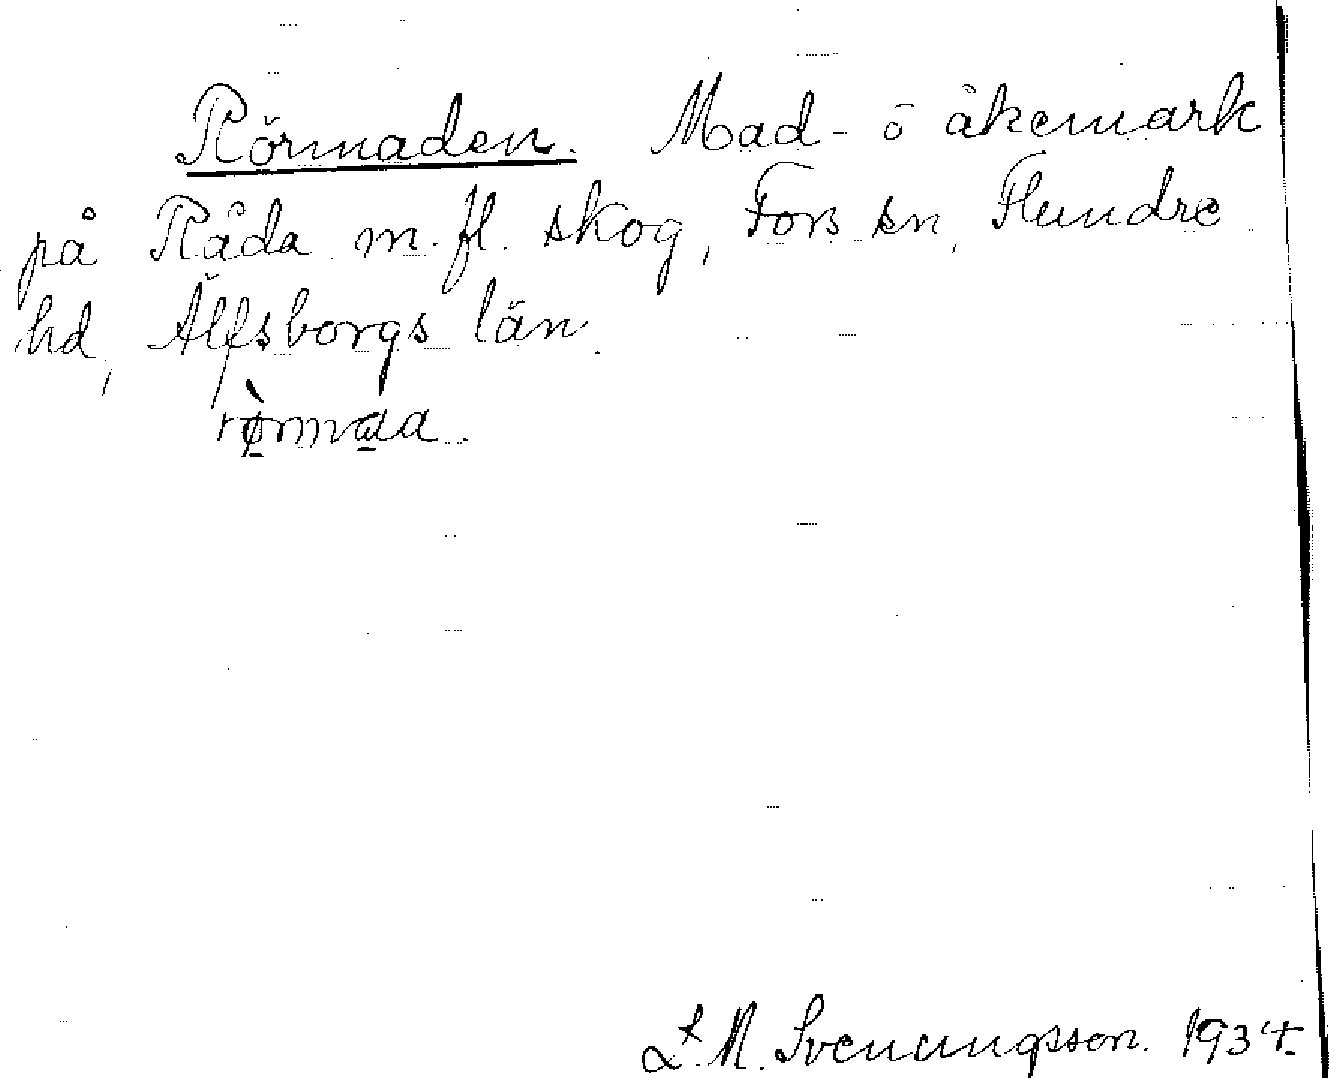 Rörmaden. Mad- o åkemark
på Råda m. fl. skog, Fors sn, Flundre
hd, Älfsborgs län.
rø̀rmaa.
L. M. Svenungsson. 1934.